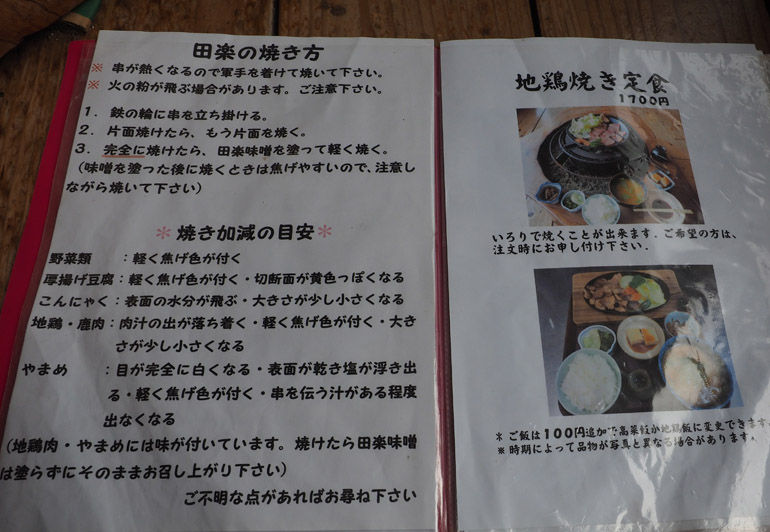 田楽の焼き方
※ 串が熱くなるので軍手を着けて焼いて下さい。
※ 火の粉が飛ぶ場合があります。ご注意下さい。
1. 鉄の輪に串を立ち掛ける。
2. 片面焼けたら、もう片面を焼く。
3. 完全に焼けたら、田楽味噌を塗って軽く焼く。
(味噌を塗った後に焼くときは焦げやすいので、注意し
ながら焼いて下さい)
＊焼き加減の目安＊
野菜類 :軽く焦げ色が付く
厚揚げ豆腐:軽く焦げ色が付く・切断面が黄色っぽくなる
こんにゃく:表面の水分が飛ぶ・大きさが少し小さくなる
地鶏・鹿肉:肉汁の出が落ち着く・軽く焦げ色が付く・大き
さが少し小さくなる
やまめ :目が完全に白くなる・表面が乾き塩が浮き出
る・軽く焦げ色が付く・串を伝う汁がある程度
出なくなる
(地鶏肉・やまめには味が付いています。焼けたら田楽味噌
は塗らずにそのままお召し上がり下さい)
ご不明な点があればお尋ね下さい
地鶏焼き定食
1700円
いろりで焼くことが出来ます。ご希望の方は、
注文時にお申し付け下さい。
＊ご飯は100円追加で高菜飯か地鶏飯に変更できます
※時期によって品物が写真と異なる場合があります。